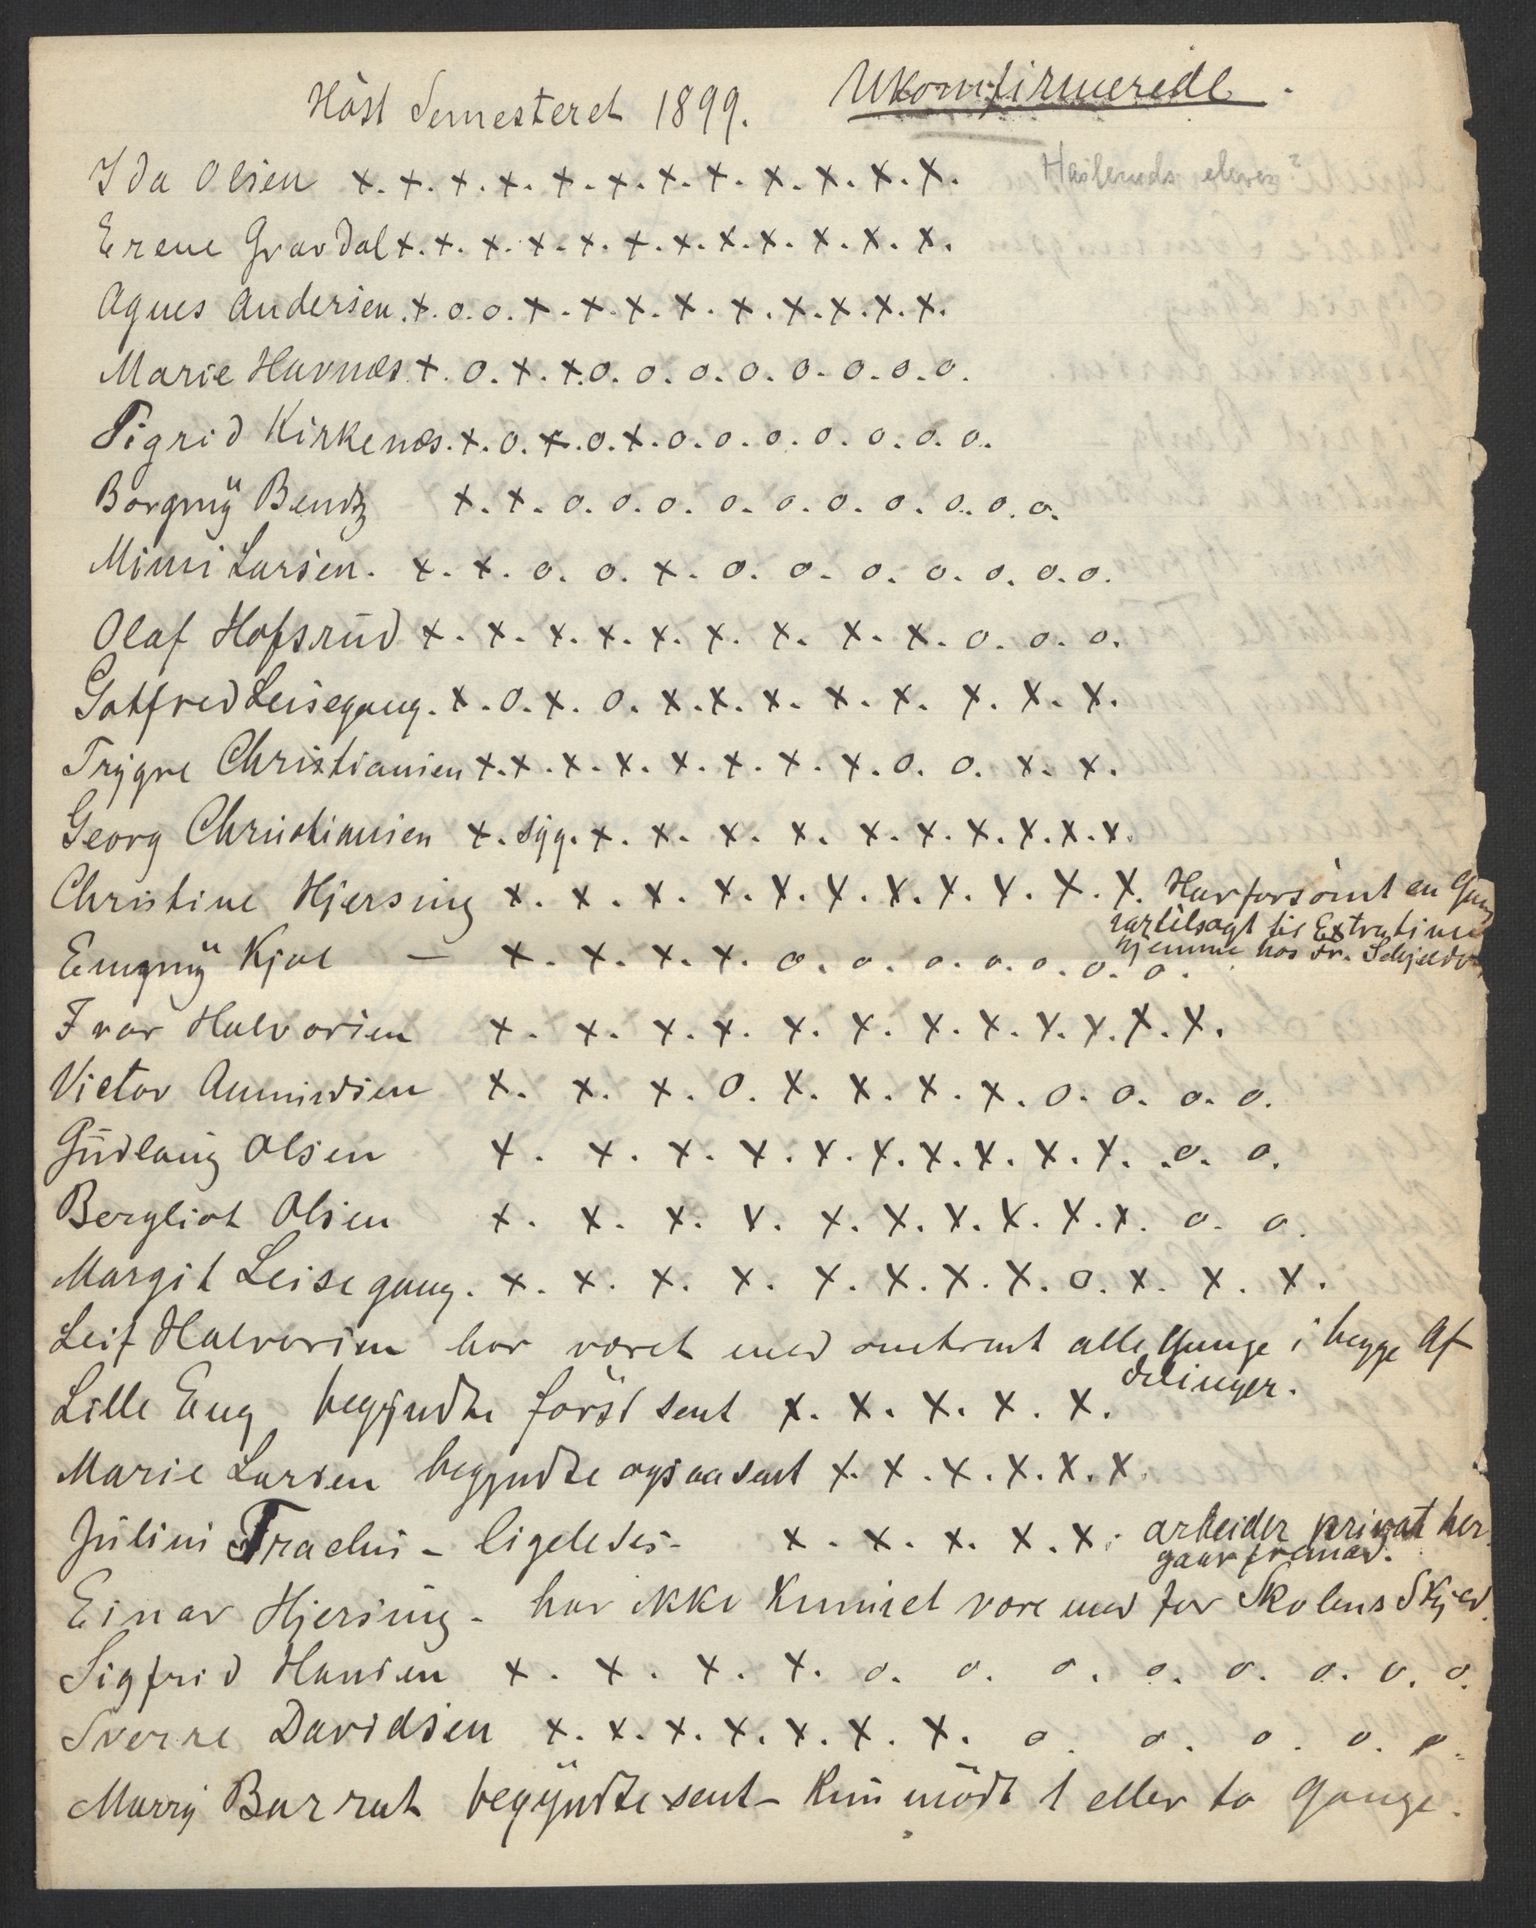 Höst Semesteret 1899. Ukomfirmerede.
elever?
Ida Olsen x. x. x. x. x. x. x. x. x. x. x. x.
Erene Gravdal x. x. x. x. x. x. x. x. x. x. x. x.
Agnes Andersen. x. o. o. x. x. x. x. x. x. x. x. x.
Marie Havnæs x. o. x. x. o. o. o. o. o. o. o. o.
Sigrid Kirkenæs. x. o. x. o. x. o. o. o. o. o. o. o.
Borgnÿ Bendz x. x. o. o. o. o. o. o. o. o. o. o.
Mimi Larsen. x. x. o. o. x. o. o. o. o. o. o. o.
Olaf Hofsrud x. x. x. x. x. x. x. x. x. o. o. o.
Gotfred Leisegang. x. o. x. o. x. x. x. x. x. x. x. x.
Trygve Christiansen x. x. x. x. x. x. x. x. o. o. x. x.
Georg Christiansen x. syg. x. x. x. x. x. x. x. x. x. x.
Christine Hjersing x. x. x. x. x. x. x. x. x. x. x. Har forsömt en Gang
tilsagt til Extratime
hjemme hos Fr.
Emgnÿ Kjol — x. x. x. x. o. o. o. o. o. o. o.
Ivar Halvorsen x. x. x. x. x. x. x. x. x. x. x. x.
Victor Amundsen x. x. x. o. x. x. x. x. o. o. o. o.
Gudlaug Olsen x. x. x. x. x. x. x. x. x. x. o. o.
Bergliot Olsen x. x. x. x. x. x. x. x. x. x. o. o.
Margit Leisegang. x. x. x. x. x. x. x. x. o. x. x. x.
Leif Halvorsen har været med omtrent alle Gange i begge Af
delinger.
Lille Eng begyndte först sent x. x. x. x. x.
Marie Larsen begyndte ogsaa sent x. x. x. x. x. x.
Julius - ligeledes - x. x. x. x. x. arbeider privat her.
gaar fremad.
Einar Hjersing - har ikke kunnet være med for Skolens Skyld.
Sigfrid Hansen x. x. x. x. o. o. o. o. o. o. o. o.
Sverre Davidsen x. x. x. x. x. x. x. o. o. o. o. o.
Marry Barrat begyndte sent - kun mödt 1 eller to Gange.